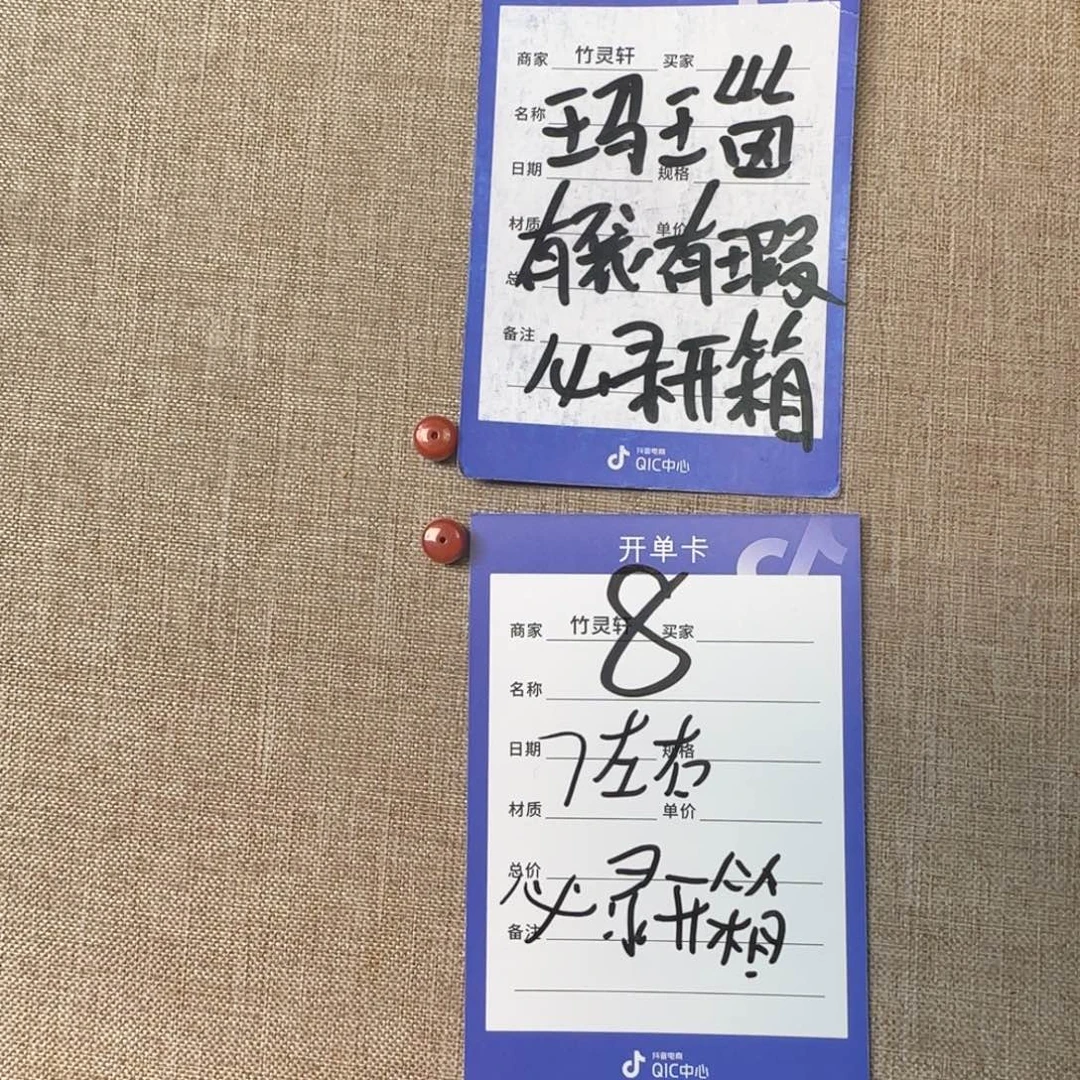 商家 竹灵轩 买家
名称 玛瑙
日期 规格
材质 单价
有裂有瑕
总
备注
必录开箱
抖音电商
QIC中心
开单卡
8
商家 竹灵轩 买家
名称
日期 7左右 规格
材质 单价
总价
必录开箱
备注
抖音电商
QIC中心